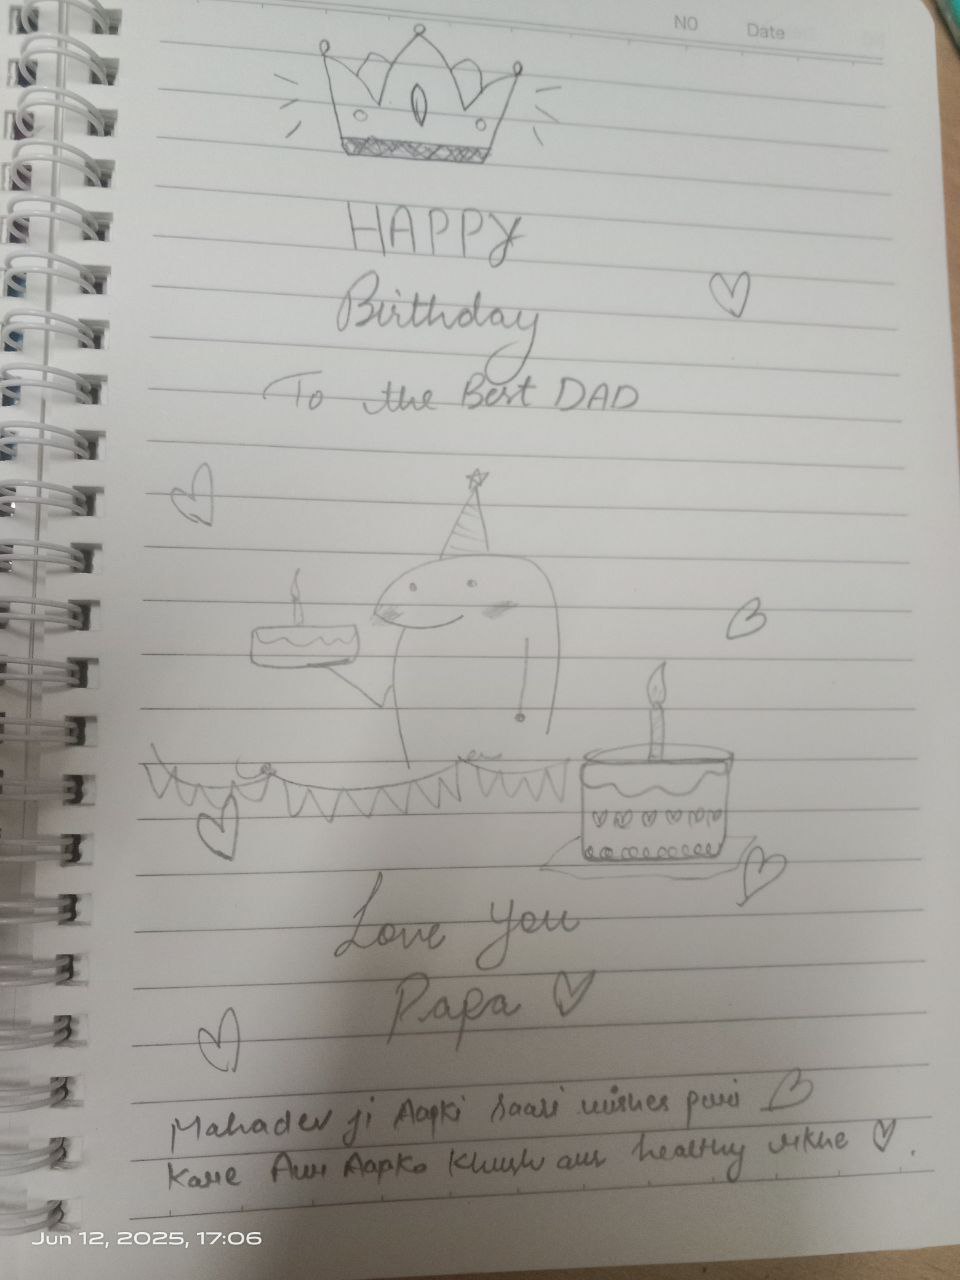 NO Date
HAPPY
Birthday
To the Best DAD
Love you
Papa
Mahadev ji Aapki saari wishes puri
kare Aur Aapko khush aur healthy rkhe
Jun 12, 2025, 17:06